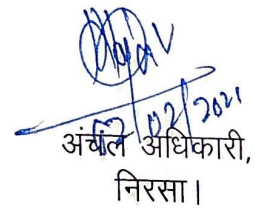 02/2021
अंचल अधिकारी,
निरसा।